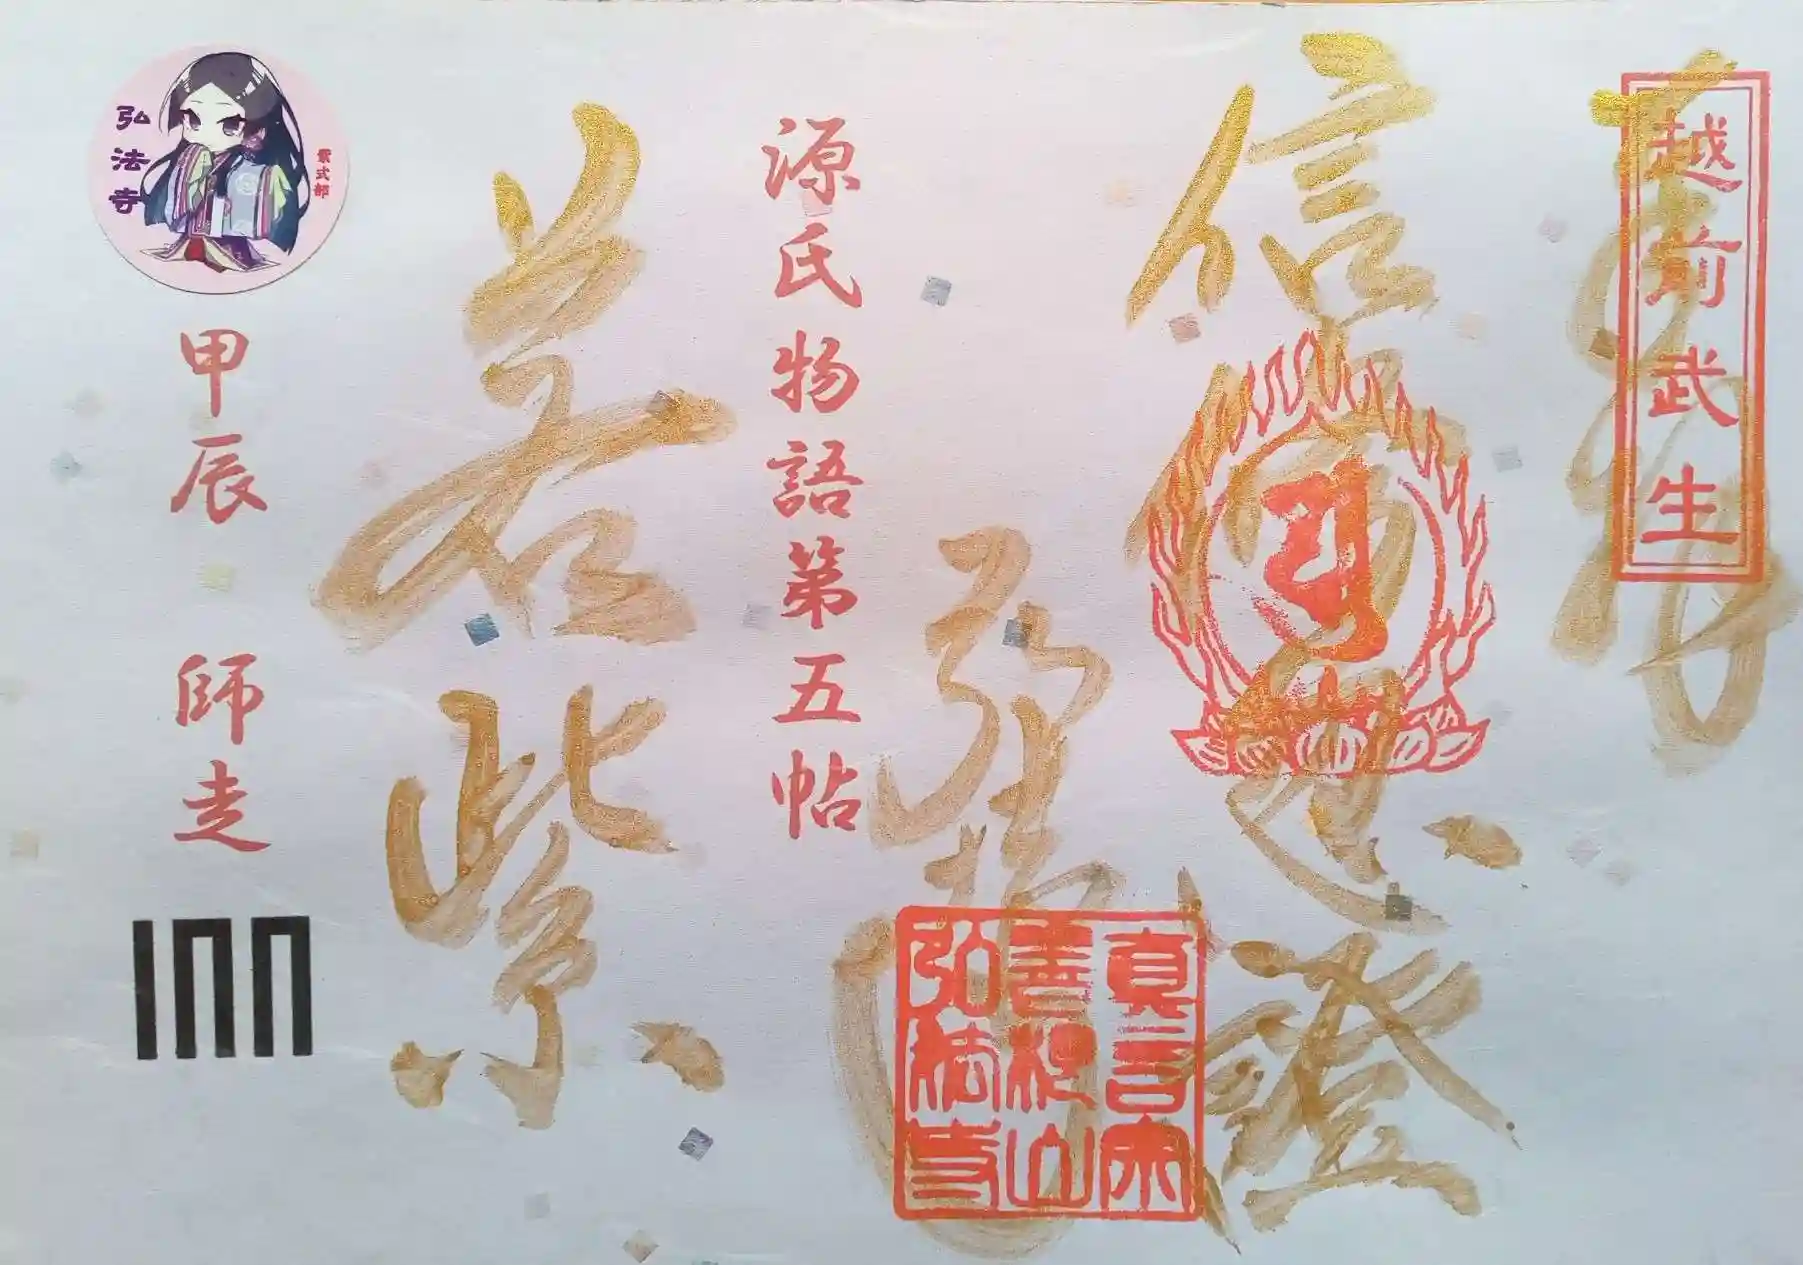 越前武生
奉拝
信修忍證
弘法寺
真言宗
善根山
弘法寺
源氏物語第五帖
若紫
紫式部
弘法寺
甲辰 師走